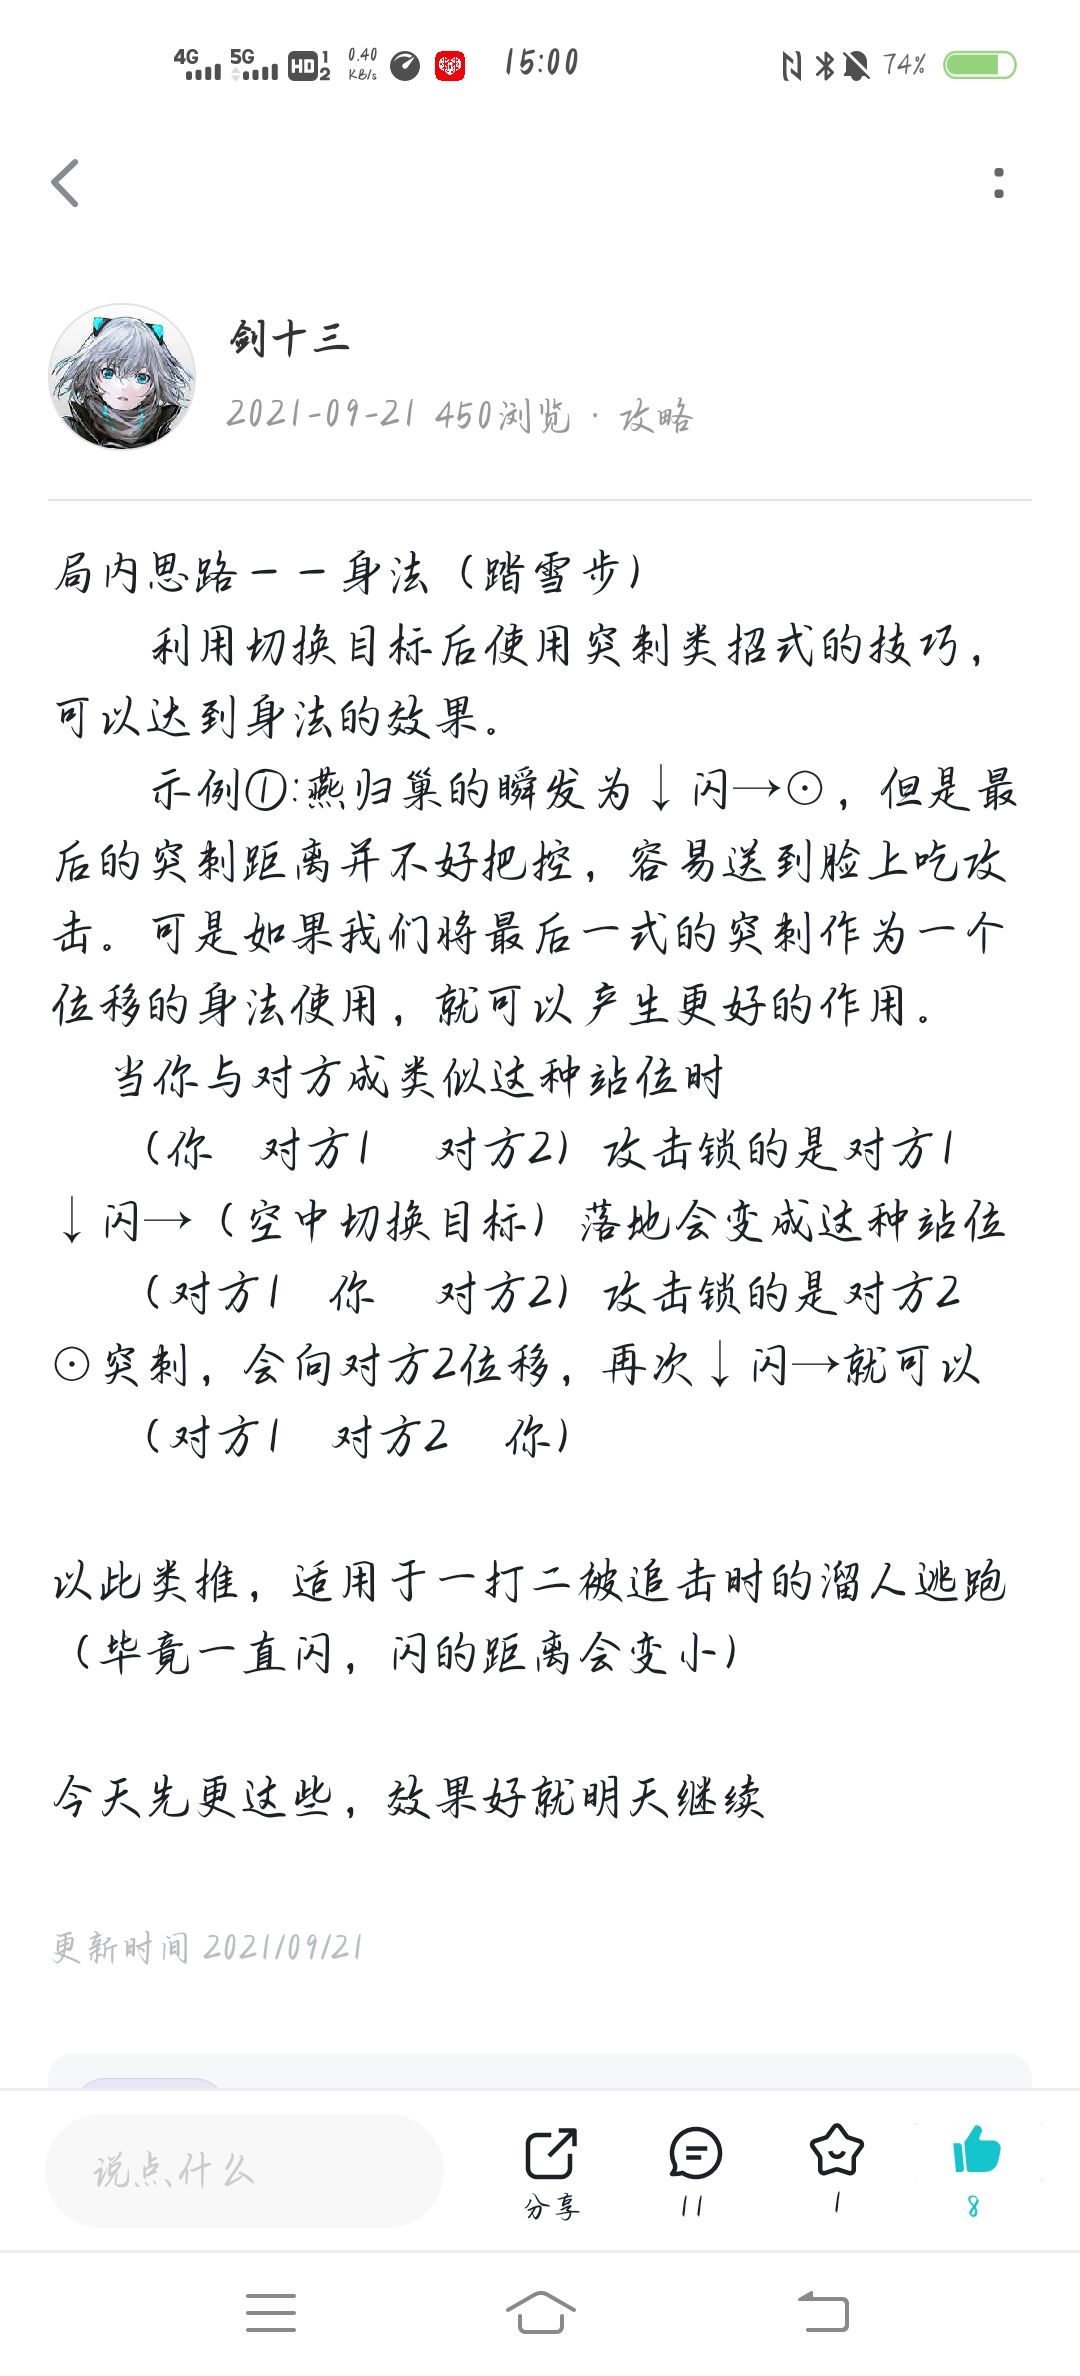 4G 5G HD 1 2 0.40 KB/s 15:00 74%
剑十三
2021-09-21 450浏览 · 攻略
局内思路——身法（踏雪步）
利用切换目标后使用突刺类招式的技巧，
可以达到身法的效果。
示例①:燕归巢的瞬发为↓闪→⊙，但是最
后的突刺距离并不好把控，容易送到脸上吃攻
击。可是如果我们将最后一式的突刺作为一个
位移的身法使用，就可以产生更好的作用。
当你与对方成类似这种站位时
（你 对方1 对方2）攻击锁的是对方1
↓闪→（空中切换目标）落地会变成这种站位
（对方1 你 对方2）攻击锁的是对方2
⊙突刺，会向对方2位移，再次↓闪→就可以
（对方1 对方2 你）
以此类推，适用于一打二被追击时的溜人逃跑
（毕竟一直闪，闪的距离会变小）
今天先更这些，效果好就明天继续
更新时间 2021/09/21
说点什么 分享 11 1 8